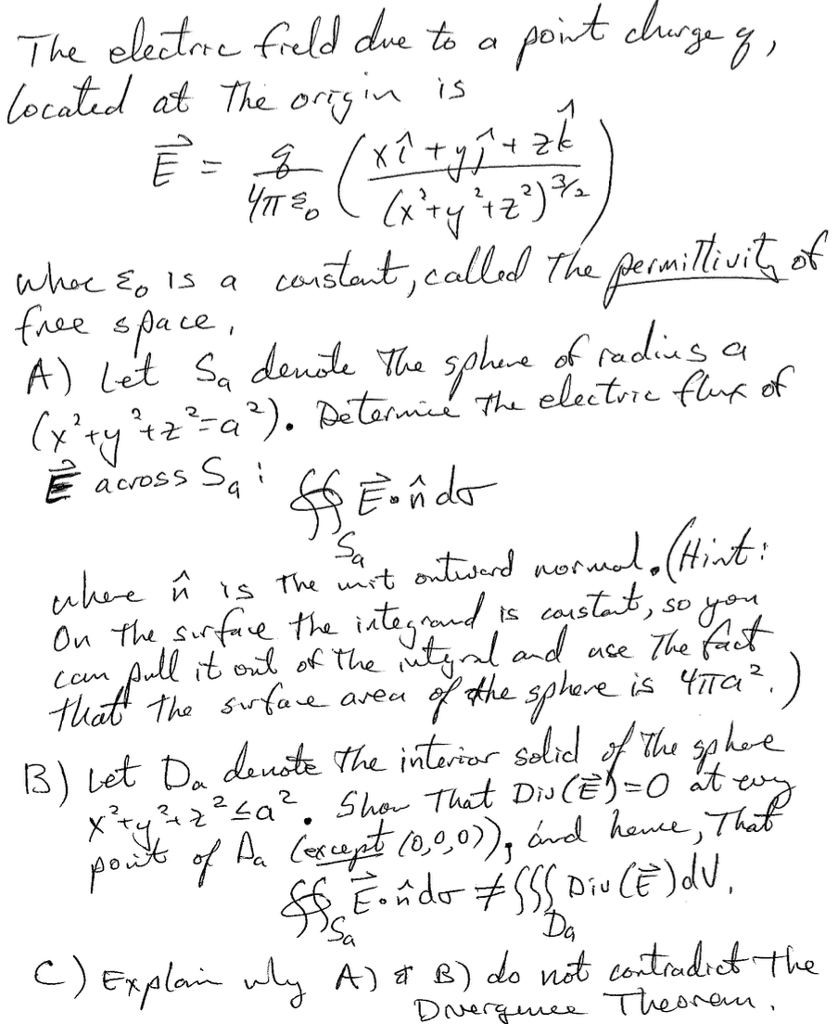 The electric field due to a point charge q,
located at the origin is
E⃗ = q/(4πε₀) ( (xî + yĵ + zk̂) / (x²+y²+z²)^(3/2) )
where ε₀ is a constant, called the permittivity of
free space.
A) Let Sₐ denote the sphere of radius a
(x²+y²+z²=a²). Determine the electric flux of
E⃗ across Sₐ: ∯ E⃗·n̂ dσ
Sₐ
where n̂ is the unit outward normal. (Hint:
On the surface the integrand is constant, so you
can pull it out of the integral and use the fact
that the surface area of the sphere is 4πa².)
B) Let Dₐ denote the interior solid of the sphere
x²+y²+z²≤a². Show that Div(E⃗)=0 at every
point of Dₐ (except (0,0,0)), and hence, that
∯ E⃗·n̂ dσ ≠ ∭ Div(E⃗) dV.
Sₐ Dₐ
C) Explain why A) & B) do not contradict the
Divergence Theorem.